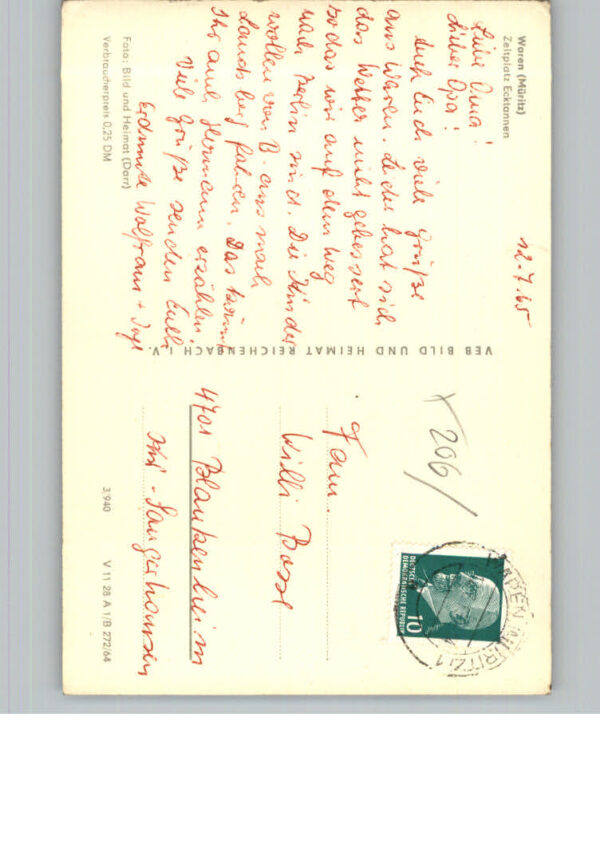 Waren (Müritz)
Zeltplatz Ecktannen
12.7.65
Liebe Oma!
Lieber Opa!
Euch viele Grüße
aus Waren. Leider hat sich
das Wetter nicht gebessert
so das wir auf dem Weg
nach Berlin sind. Die Kinder
wollen von B. aus nach
Landsberg fahren. Das könnt
Ihr auch Hermann erzählen
Viele Grüße senden Euch
Erdmute Wolfram + Inge
Foto: Bild und Heimat (Darr)
Verbraucherpreis 0,25 DM
VEB BILD UND HEIMAT REICHENBACH I. V.
206
DEUTSCHE
DEMOKRATISCHE REPUBLIK
10
WAREN (MÜRITZ) 1
Fam.
Willi Bosse
4701 Blankenheim
Krs. Sangerhausen
3/940
V 11 28 A 1/B 272/64